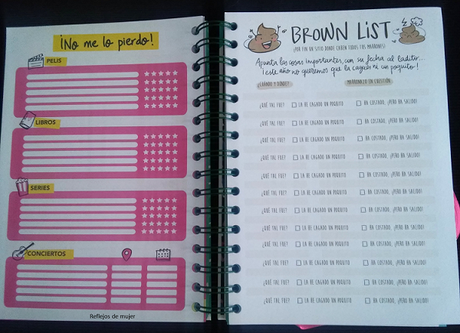 ¡No me lo pierdo!
PELIS
LIBROS
SERIES
CONCIERTOS
Reflejos de mujer
BROWN LIST
¡POR FIN UN SITIO DONDE CABEN TODOS TUS MARRONES!
Apunta las cosas importantes, con su fecha al ladito...
¡este año no queremos que la cagues ni un poquito!
MARRONCILLO EN CUESTIÓN
¿QUÉ TAL FUE? LA HE CAGADO UN POQUITO HA COSTADO, ¡PERO HA SALIDO!
¿QUÉ TAL FUE? LA HE CAGADO UN POQUITO HA COSTADO, ¡PERO HA SALIDO!
¿QUÉ TAL FUE? LA HE CAGADO UN POQUITO HA COSTADO, ¡PERO HA SALIDO!
¿QUÉ TAL FUE? LA HE CAGADO UN POQUITO HA COSTADO, ¡PERO HA SALIDO!
¿QUÉ TAL FUE? LA HE CAGADO UN POQUITO HA COSTADO, ¡PERO HA SALIDO!
¿QUÉ TAL FUE? LA HE CAGADO UN POQUITO HA COSTADO, ¡PERO HA SALIDO!
¿QUÉ TAL FUE? LA HE CAGADO UN POQUITO HA COSTADO, ¡PERO HA SALIDO!
¿QUÉ TAL FUE? LA HE CAGADO UN POQUITO HA COSTADO, ¡PERO HA SALIDO!
¿QUÉ TAL FUE? LA HE CAGADO UN POQUITO HA COSTADO, ¡PERO HA SALIDO!
¿QUÉ TAL FUE? LA HE CAGADO UN POQUITO HA COSTADO, ¡PERO HA SALIDO!
¿QUÉ TAL FUE? LA HE CAGADO UN POQUITO HA COSTADO, ¡PERO HA SALIDO!
¿QUÉ TAL FUE? LA HE CAGADO UN POQUITO HA COSTADO, ¡PERO HA SALIDO!